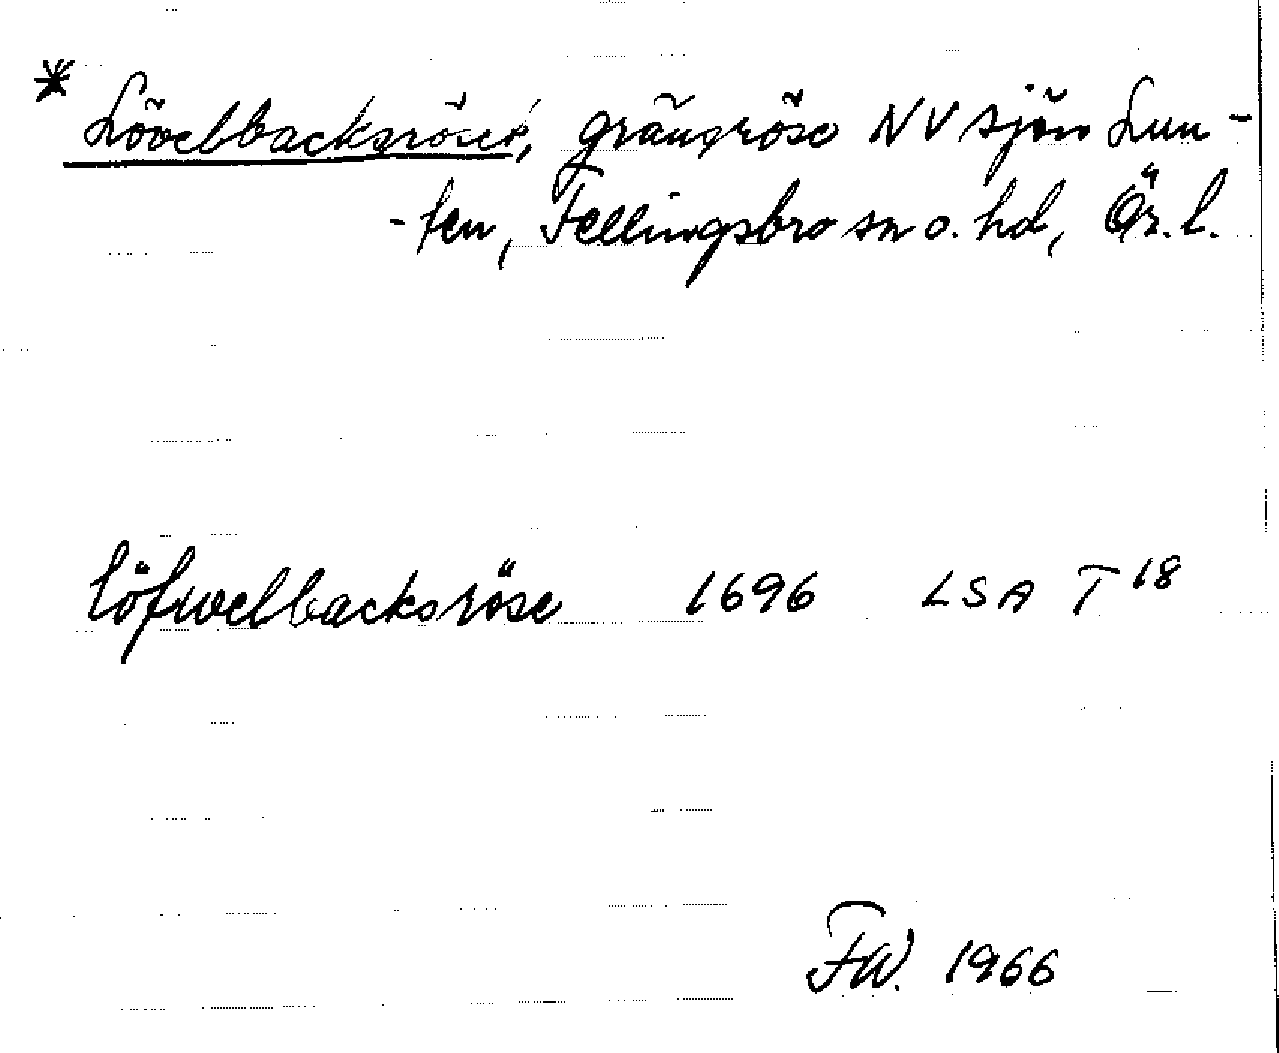 * Lövelbacksröset, gränsröse NV sjön Lun-
-ten, Fellingsbro sn o. hd, Ör. l.
Löfwelbacksröse 1696 LSA T 18
FW. 1966